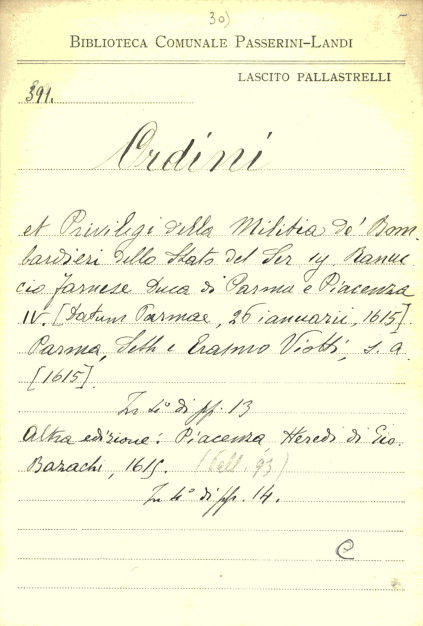 30)
BIBLIOTECA COMUNALE PASSERINI-LANDI
LASCITO PALLASTRELLI
391.
Ordini
et Privilegi della Militia de' Bom-
bardieri dello Stato del Ser. Ranuc-
cio Farnese Duca di Parma e Piacenza
IV. [Datum Parmae, 26 ianuarii, 1615].
Parma, Seth e Erasmo Viotti, s. a.
[1615].
In 4° di pp. 13
Altra edizione: Piacenza, Heredi di Gio.
Bazachi, 1615. (Coll. 93)
In 4° di pp. 14.
C